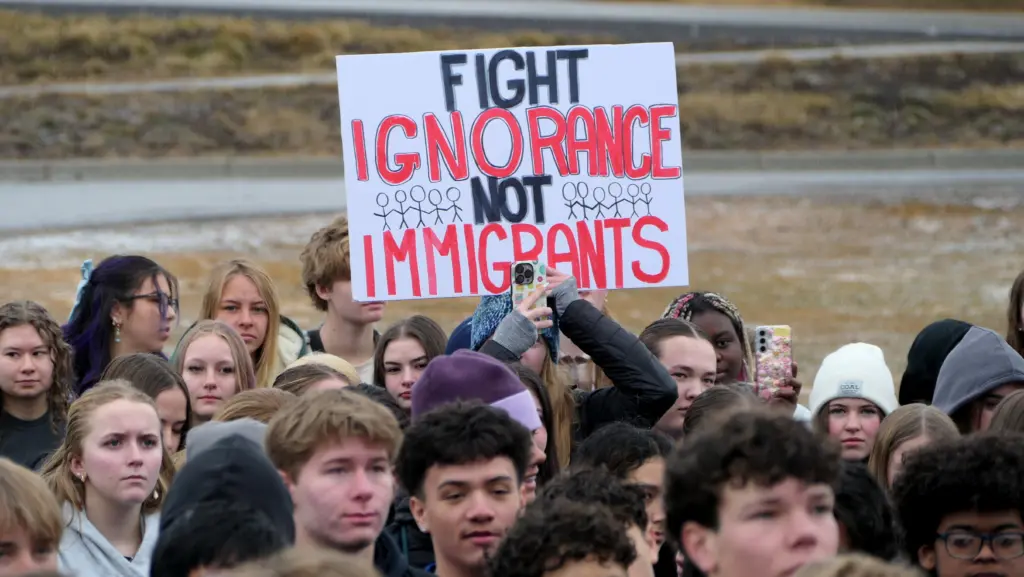 FIGHT
IGNORANCE
NOT
IMMIGRANTS
COAL